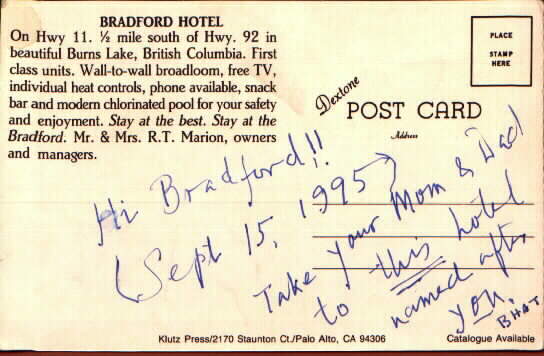 BRADFORD HOTEL
On Hwy 11. ½ mile south of Hwy. 92 in
beautiful Burns Lake, British Columbia. First
class units. Wall-to-wall broadloom, free TV,
individual heat controls, phone available, snack
bar and modern chlorinated pool for your safety
and enjoyment. Stay at the best. Stay at the
Bradford. Mr. & Mrs. R.T. Marion, owners
and managers.
PLACE
STAMP
HERE
Dextone
POST CARD
Address
Hi Bradford!!
(Sept 15, 1995)
Take your Mom & Dad
to this hotel
named after
you.
BHAT
Klutz Press/2170 Staunton Ct./Palo Alto, CA 94306
Catalogue Available